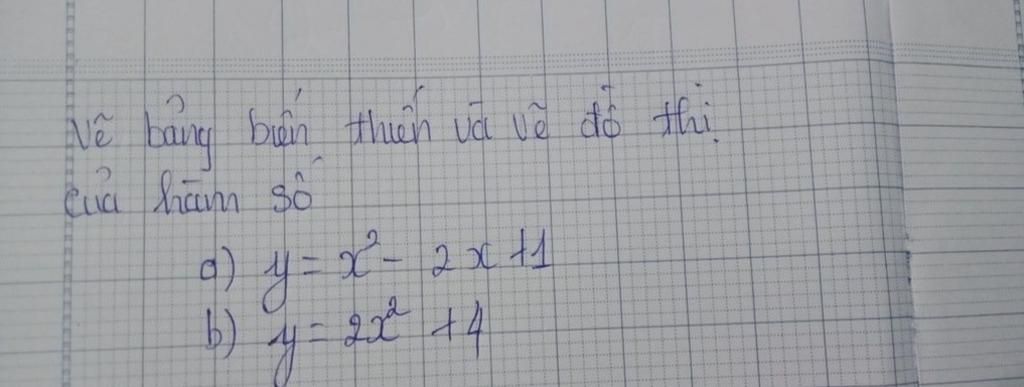 Vẽ bảng biến thiên và vẽ đồ thị
của hàm số
a) y = x² - 2x + 1
b) y = 2x² + 4